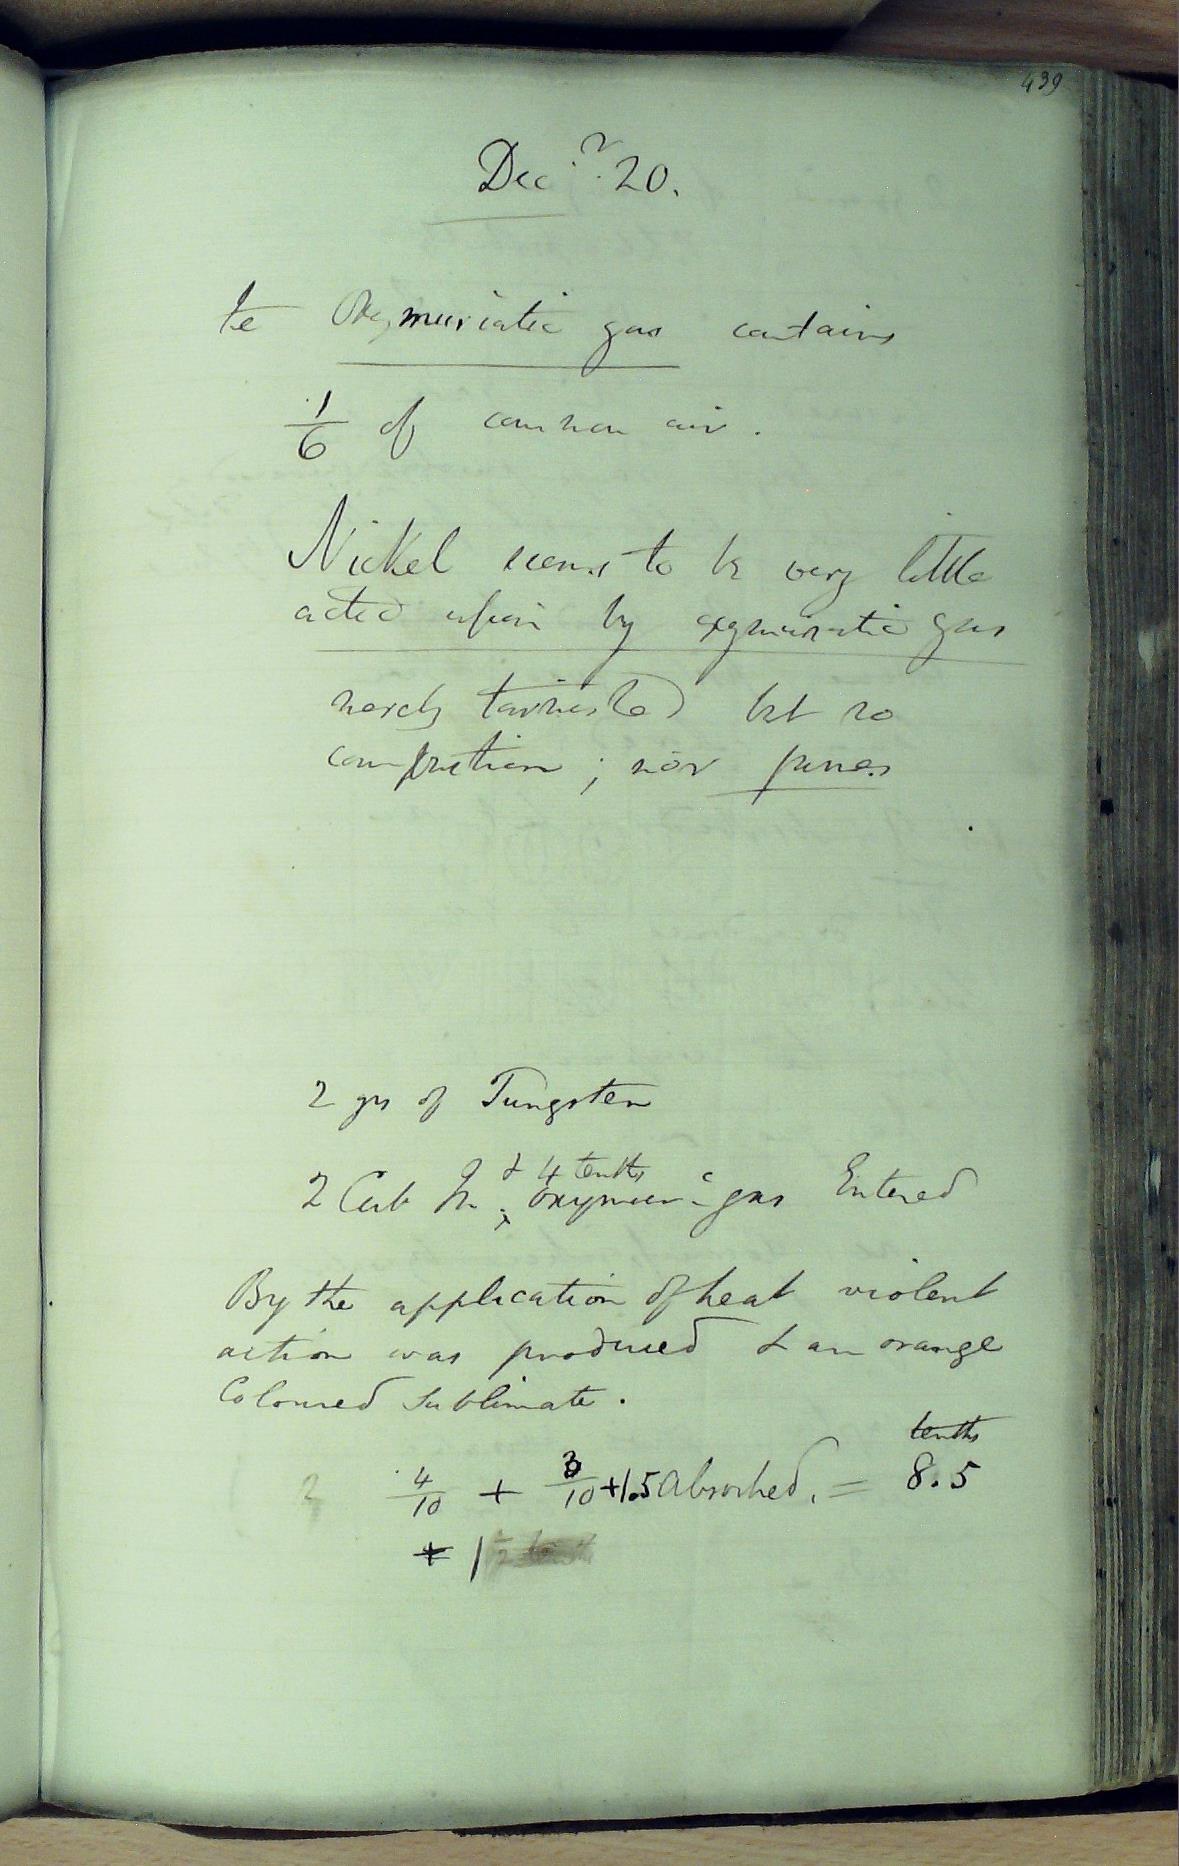 439
Decr 20.
te Oxymuriatic gas contains
1/6 of common air.
Nickel seems to be very little
acted upon by oxymuriatic gas
merely tarnished but no
combustion; nor fumes
2 grs of Tungsten
& 4 tenths
2 Cub In. oxymurc gas Entered
By the application of heat violent
action was produced & an orange
Coloured sublimate.
tenths
4/10 + 3/10 + 1.5 absorbed. = 8.5
+ 1 1/2